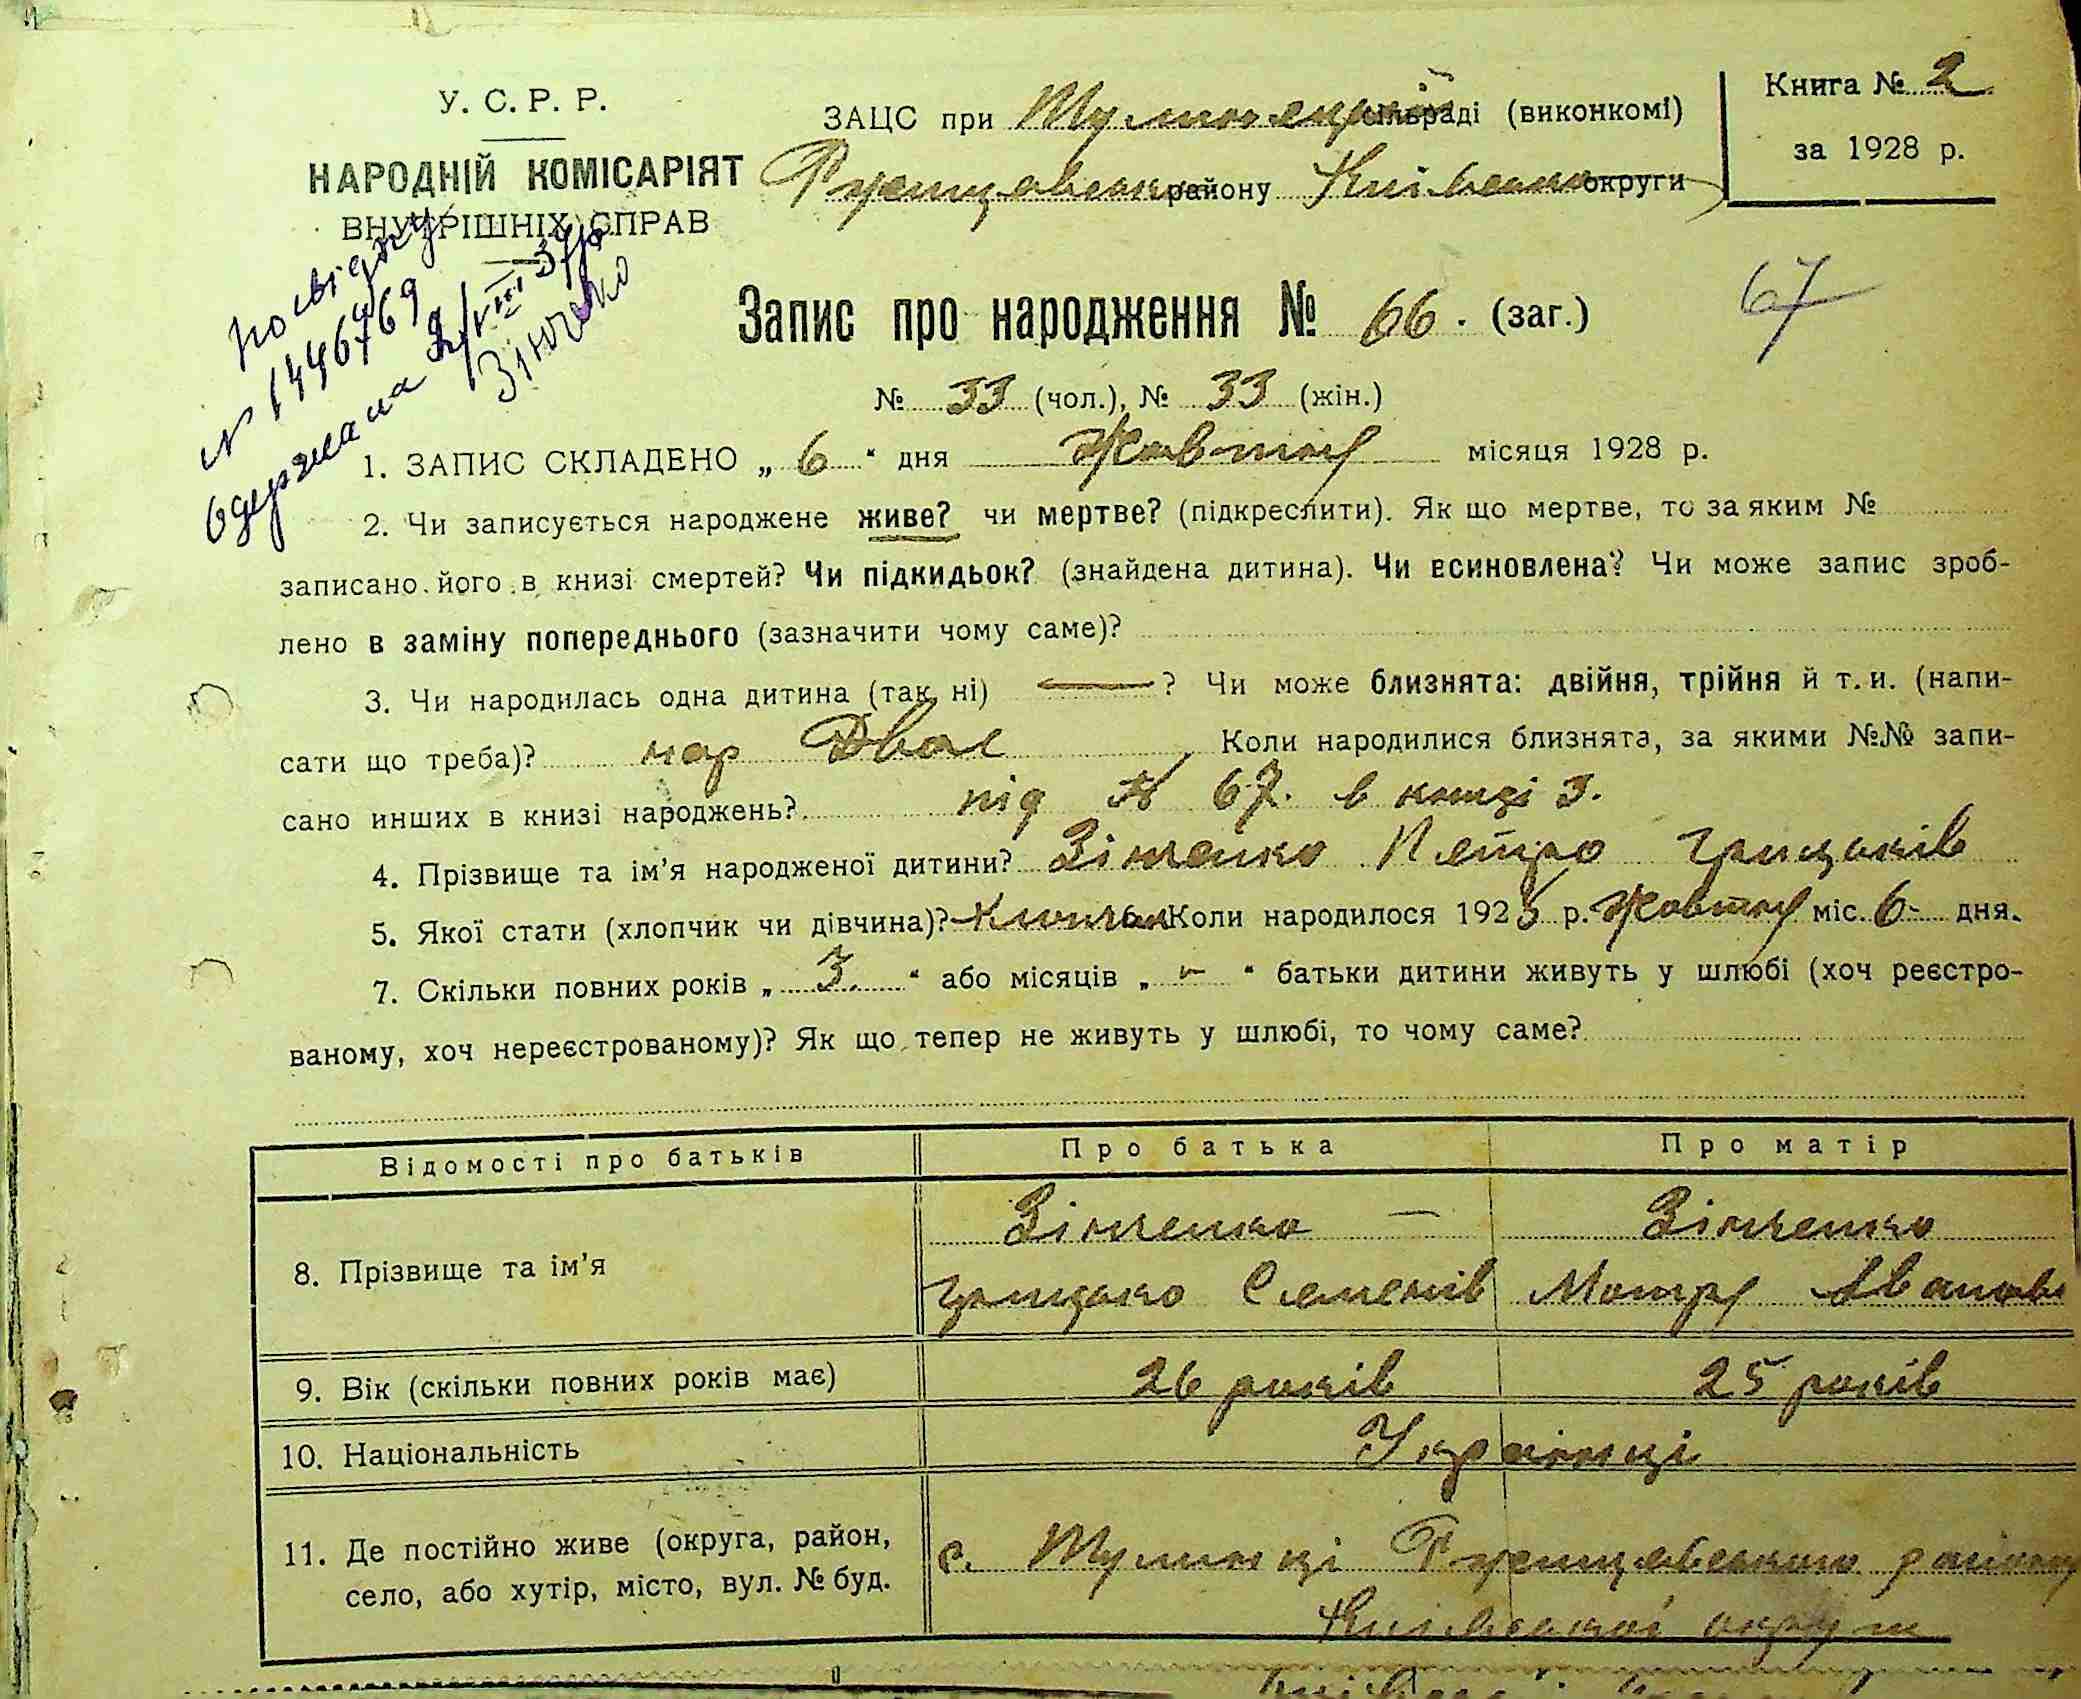 У. С. Р. Р.
НАРОДНІЙ КОМІСАРІЯТ
ВНУТРІШНІХ СПРАВ
посвідку
N 1446769
одержала 9/VIII 34 р
Зінченко
ЗАЦС при Тулинецькій сільраді (виконкомі)
Ржищевського району Київської округи
Книга № 2
за 1928 р.
Запис про народження № 66. (заг.)
67
№ 33 (чол.), № 33 (жін.)
1. ЗАПИС СКЛАДЕНО „ 6 “ дня Жовтня місяця 1928 р.
2. Чи записується народжене живе? чи мертве? (підкреслити). Як що мертве, то за яким №
записано його в книзі смертей? Чи підкидьок? (знайдена дитина). Чи всиновлена? Чи може запис зроб-
лено в заміну попереднього (зазначити чому саме)?
3. Чи народилась одна дитина (так, ні) — ? Чи може близнята: двійня, трійня й т. и. (напи-
сати що треба)? нар Двоє Коли народилися близнята, за якими №№ запи-
сано инших в книзі народжень? під № 67. в книзі 3.
4. Прізвище та ім’я народженої дитини? Зінченко Петро Грицьків
5. Якої стати (хлопчик чи дівчина)? Хлопчик Коли народилося 1928 р. Жовтня міс. 6 - дня.
7. Скільки повних років „ 3. “ або місяців „ - “ батьки дитини живуть у шлюбі (хоч реєстро-
ваному, хоч нереєстрованому)? Як що тепер не живуть у шлюбі, то чому саме?
Відомості про батьків Про батька Про матір
8. Прізвище та ім’я
Зінченко — Зінченко
Грицько Семенів Мотря Іванова
9. Вік (скільки повних років має) 26 років 25 років
10. Національність Українці
11. Де постійно живе (округа, район,
село, або хутір, місто, вул. № буд.
с. Тулинці Ржищевського району
Київської округи